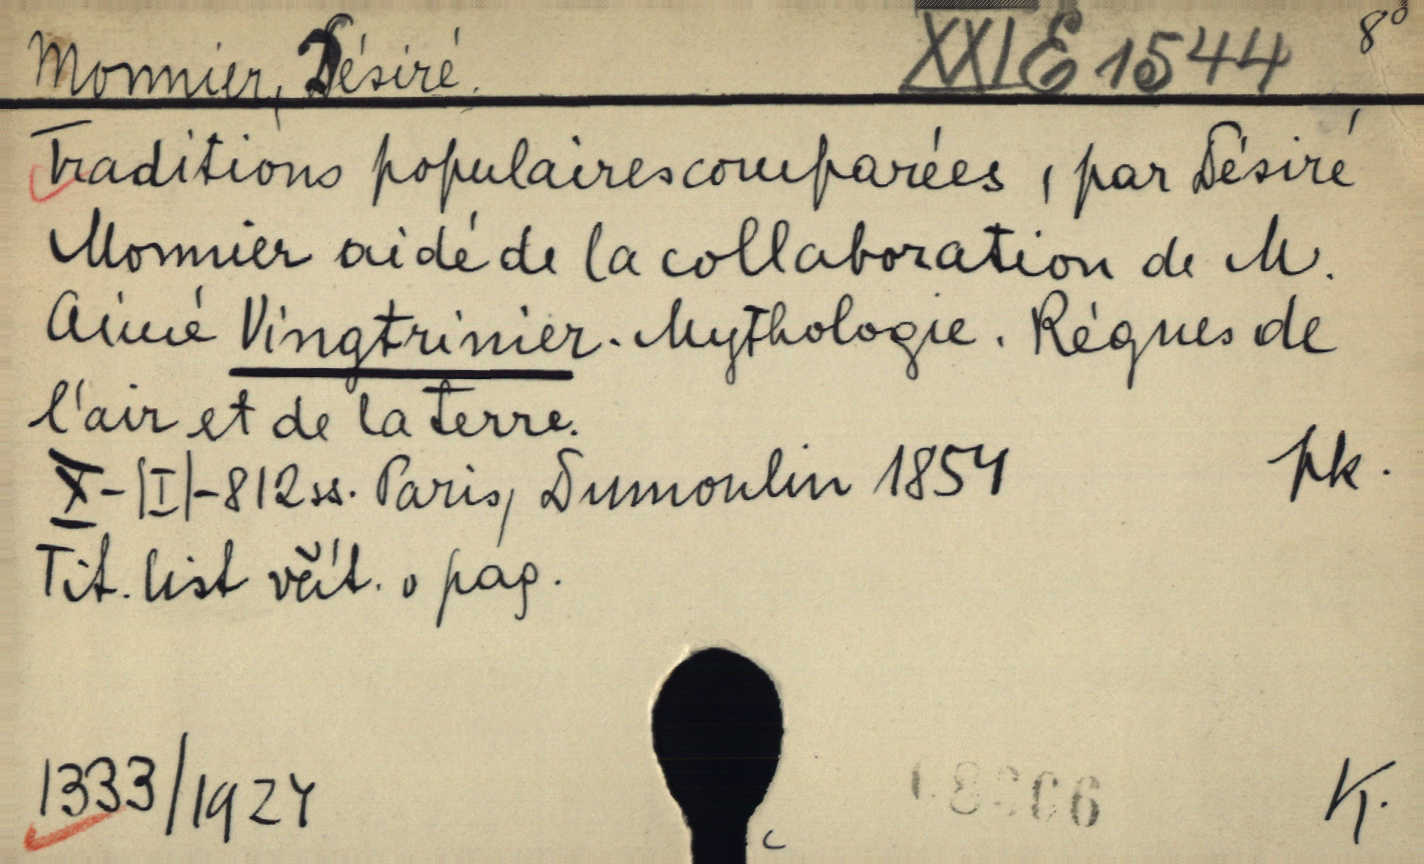 Monnier, Désiré.
XXI E 1544
8°
Traditions populaires comparées, par Désiré
Monnier aidé de la collaboration de M.
Aimé Vingtrinier. Mythologie. Régnes de
l'air et de la terre.
X-|I|-812 ss. Paris, Dumoulin 1854
pk.
Tit. list včít. o pag.
1333/1924
K.